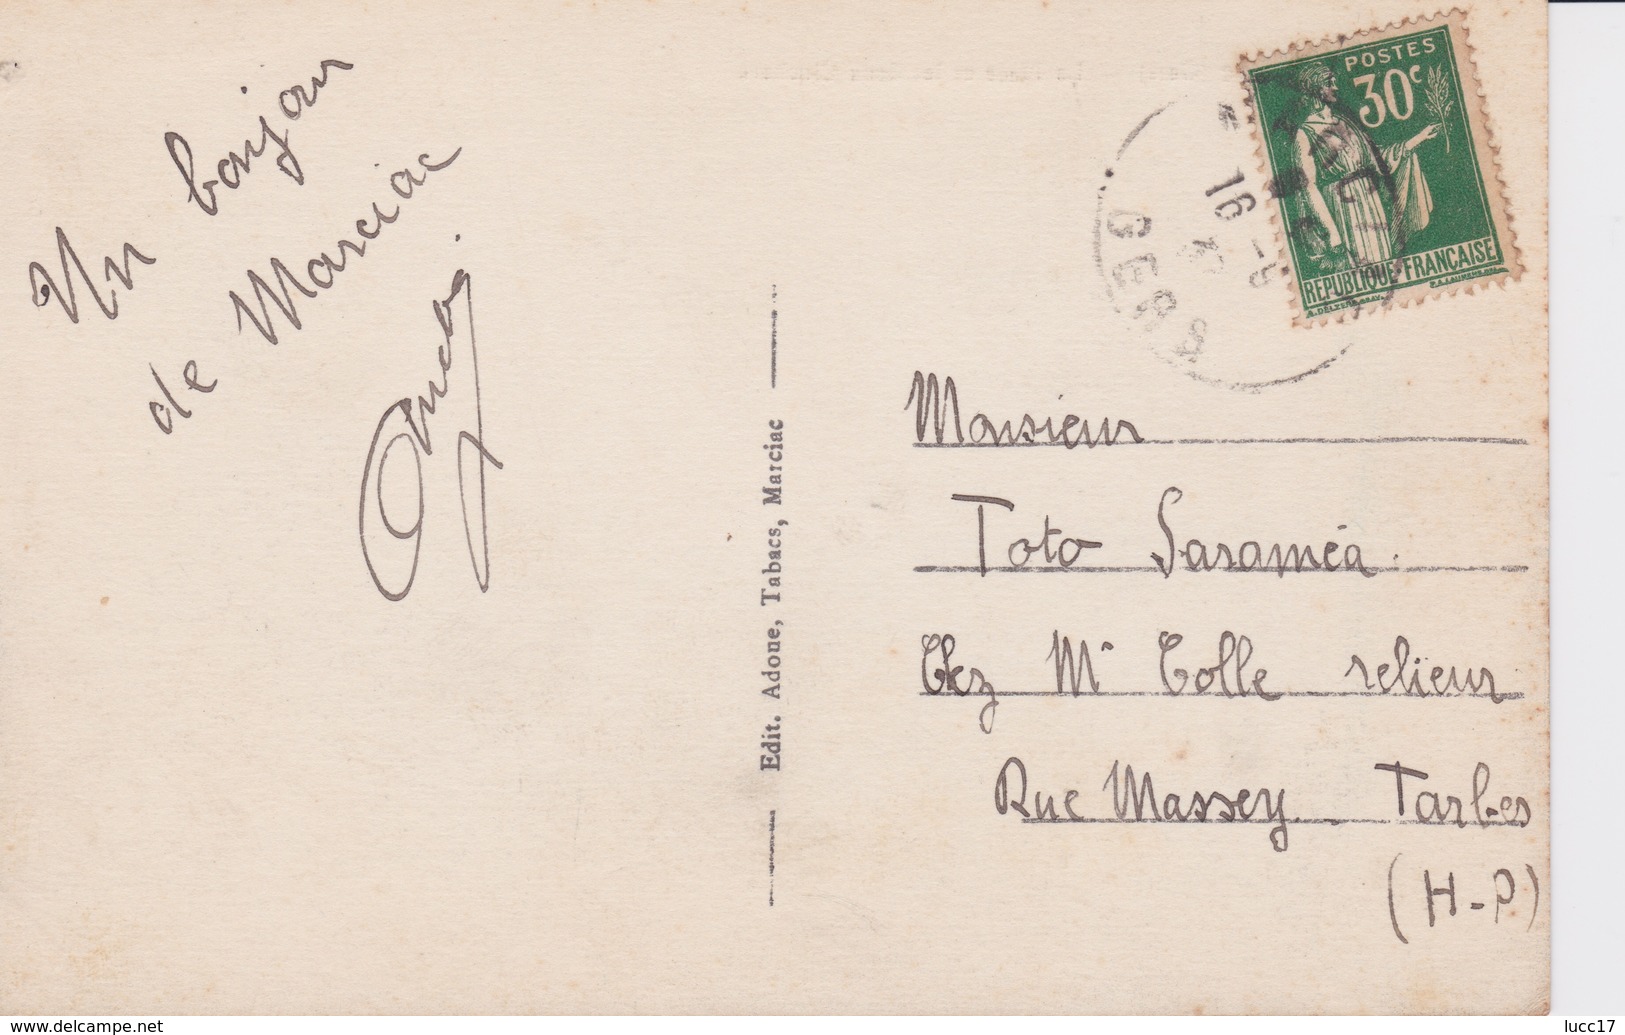 Un bonjour
de Marciac
Edit. Adoue, Tabacs, Marciac
POSTES
30c
REPUBLIQUE FRANÇAISE
16 -5
GERS
Monsieur
Toto Saraméa
Chez Mr Colle relieur
Rue Massey Tarbes
(H-P)
www.delcampe.net
lucc17